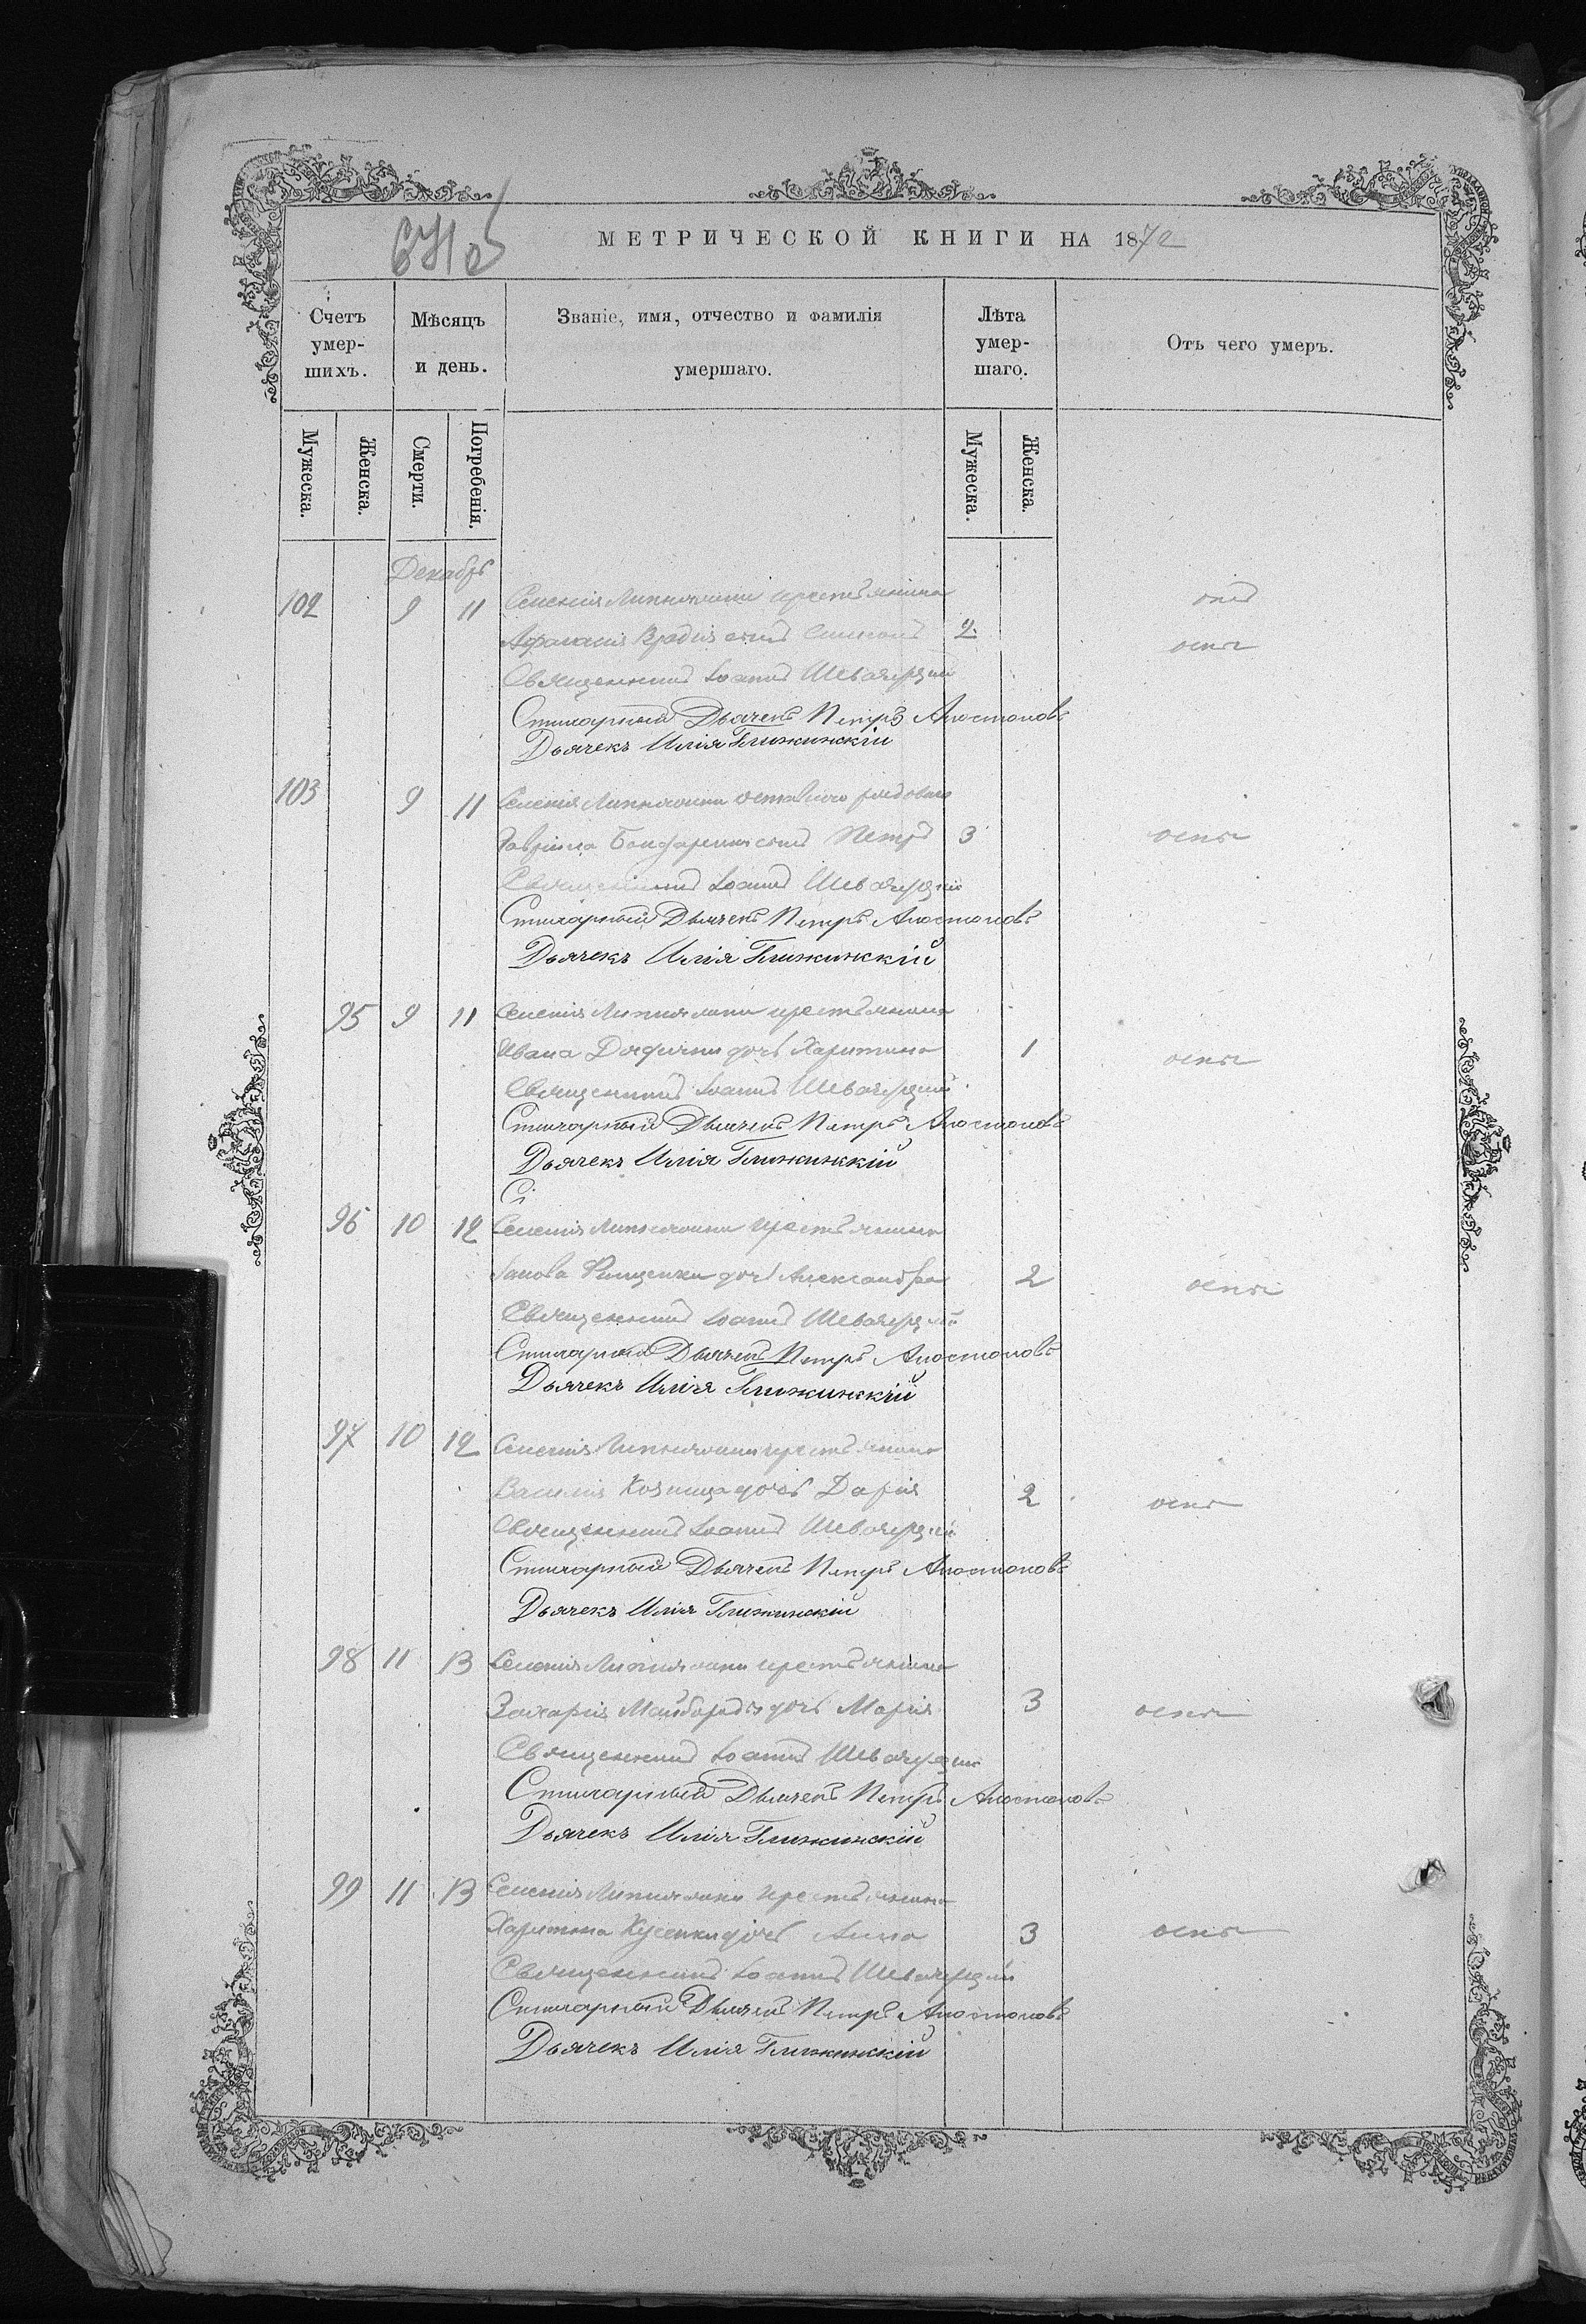 МЕТРИЧЕСКОЙ КНИГИ НА 1872
Счетъ умер-шихъ.
Мѣсяцъ и день.
Званіе, имя, отчество и фамилія умершаго.
Лѣта умер-шаго.
Отъ чего умеръ.
Мужеска.
Женска.
Смерти.
Погребенія.
Мужеска.
Женска.
Декабрь
102 9 11 Селенія Липняжки крестьянина
Афанасія сынъ Симеонъ 2 оспы
Священникъ Іоаннъ
Стихарный Дьячекъ Петръ Апостоловъ
Дьячекъ Илія Глижинскій
103 9 11 Селенія Липняжки рядоваго
Гавріила Бондаренка сынъ Петръ 3 оспы
Священникъ Іоаннъ
Стихарный Дьячекъ Петръ Апостоловъ
Дьячекъ Илія Глижинскій
95 9 11 Селенія Липняжки крестьянина
Ивана дочь Харитина 1 оспы
Священникъ Іоаннъ
Стихарный Дьячекъ Петръ Апостоловъ
Дьячекъ Илія Глижинскій
Сі
96 10 12 Селенія Липняжки крестьянина
Іакова дочь Александра 2 оспы
Священникъ Іоаннъ
Стихарный Дьячекъ Петръ Апостоловъ
Дьячекъ Илія Глижинскій
97 10 12 Селенія Липняжки крестьянина
Василія дочь Дарія 2 оспы
Священникъ Іоаннъ
Стихарный Дьячекъ Петръ Апостоловъ
Дьячекъ Илія Глижинскій
98 11 13 Селенія Липняжки крестьянина
Захарія Майбороды дочь Марія 3 оспы
Священникъ Іоаннъ
Стихарный Дьячекъ Петръ Апостоловъ
Дьячекъ Илія Глижинскій
99 11 13 Селенія Липняжки крестьянина
Харитона дочь Анна 3 оспы
Священникъ Іоаннъ
Стихарный Дьячекъ Петръ Апостоловъ
Дьячекъ Илія Глижинскій